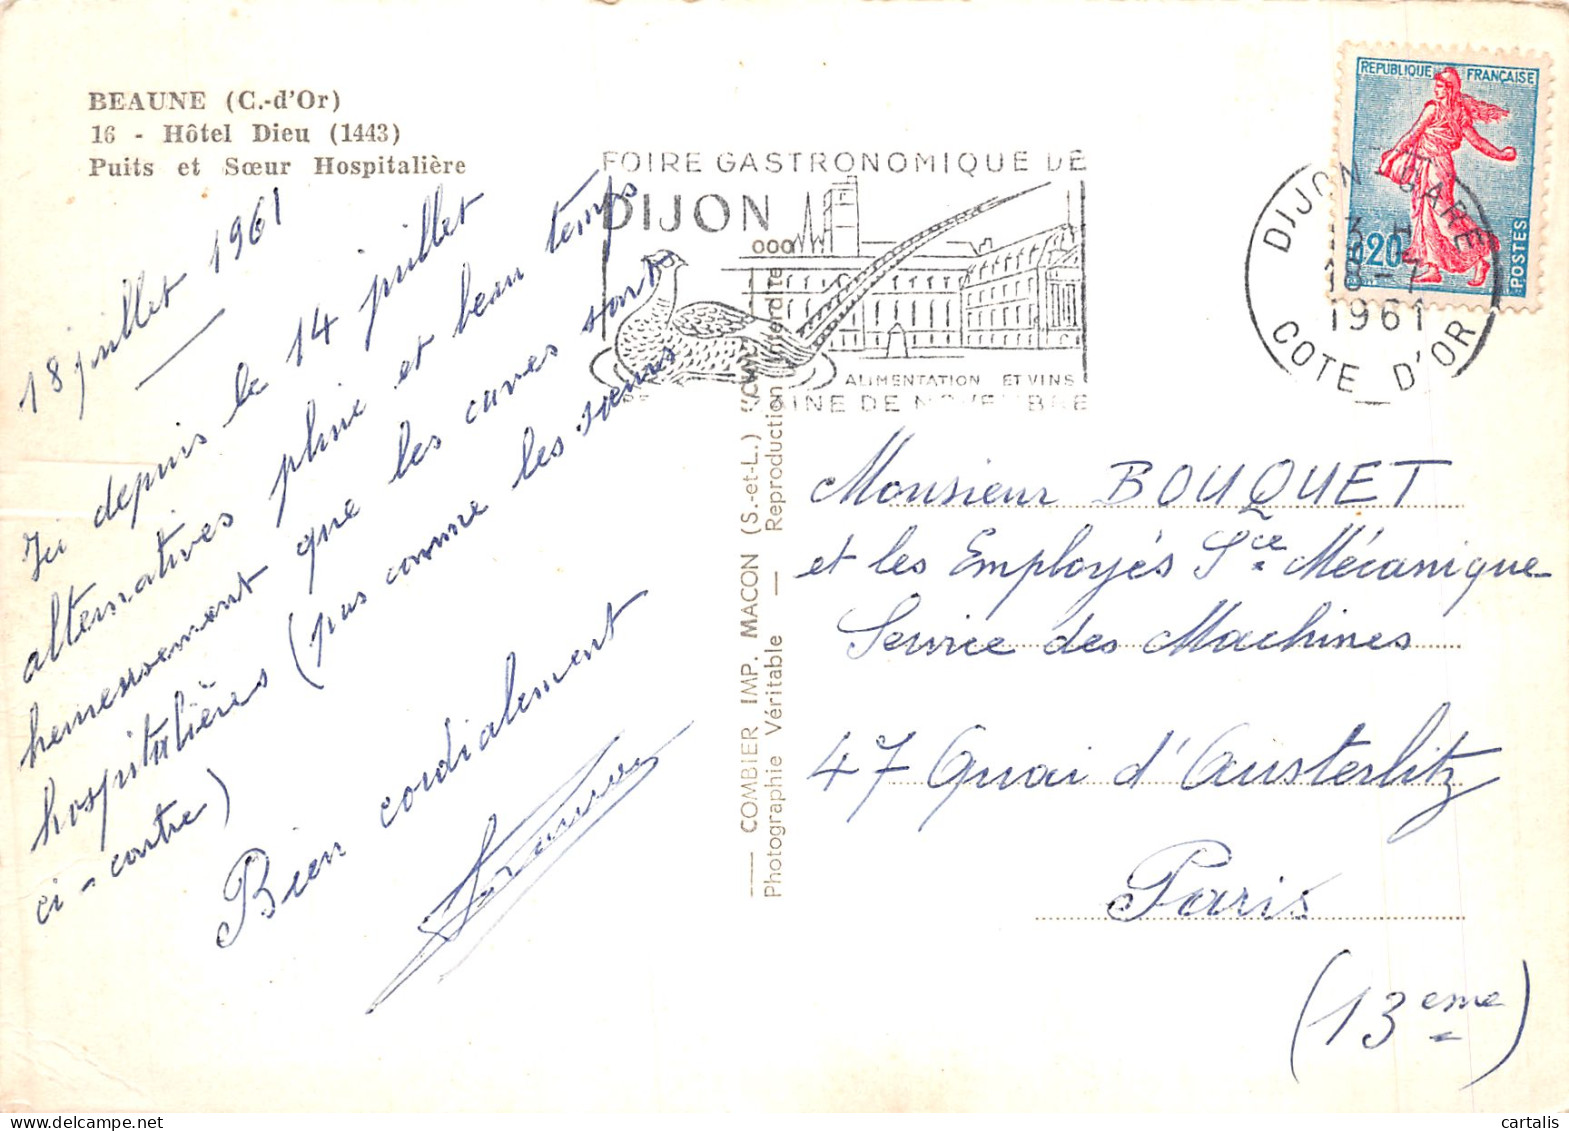 BEAUNE (C.-d'Or)
16 - Hôtel Dieu (1443)
Puits et Sœur Hospitalière
18 juillet 1961
Ici depuis le 14 juillet
alternatives pluie et beau temps
heureusement que les caves sont
hospitalières (pas comme les sœurs
ci-contre)
Bien cordialement
FOIRE GASTRONOMIQUE DE
DIJON
ALIMENTATION ET VINS
DE NOVEMBRE
COMBIER IMP. MACON (S.-et-L.)
Photographie Véritable — Reproduction Interdite
REPUBLIQUE FRANÇAISE
0,20
POSTES
DIJON GARE
13 H
18 - 7
1961
COTE D'OR
Monsieur BOUQUET
et les Employés Sce Mécanique
Service des Machines
47 Quai d'Austerlitz
Paris
(13eme)
cartalis